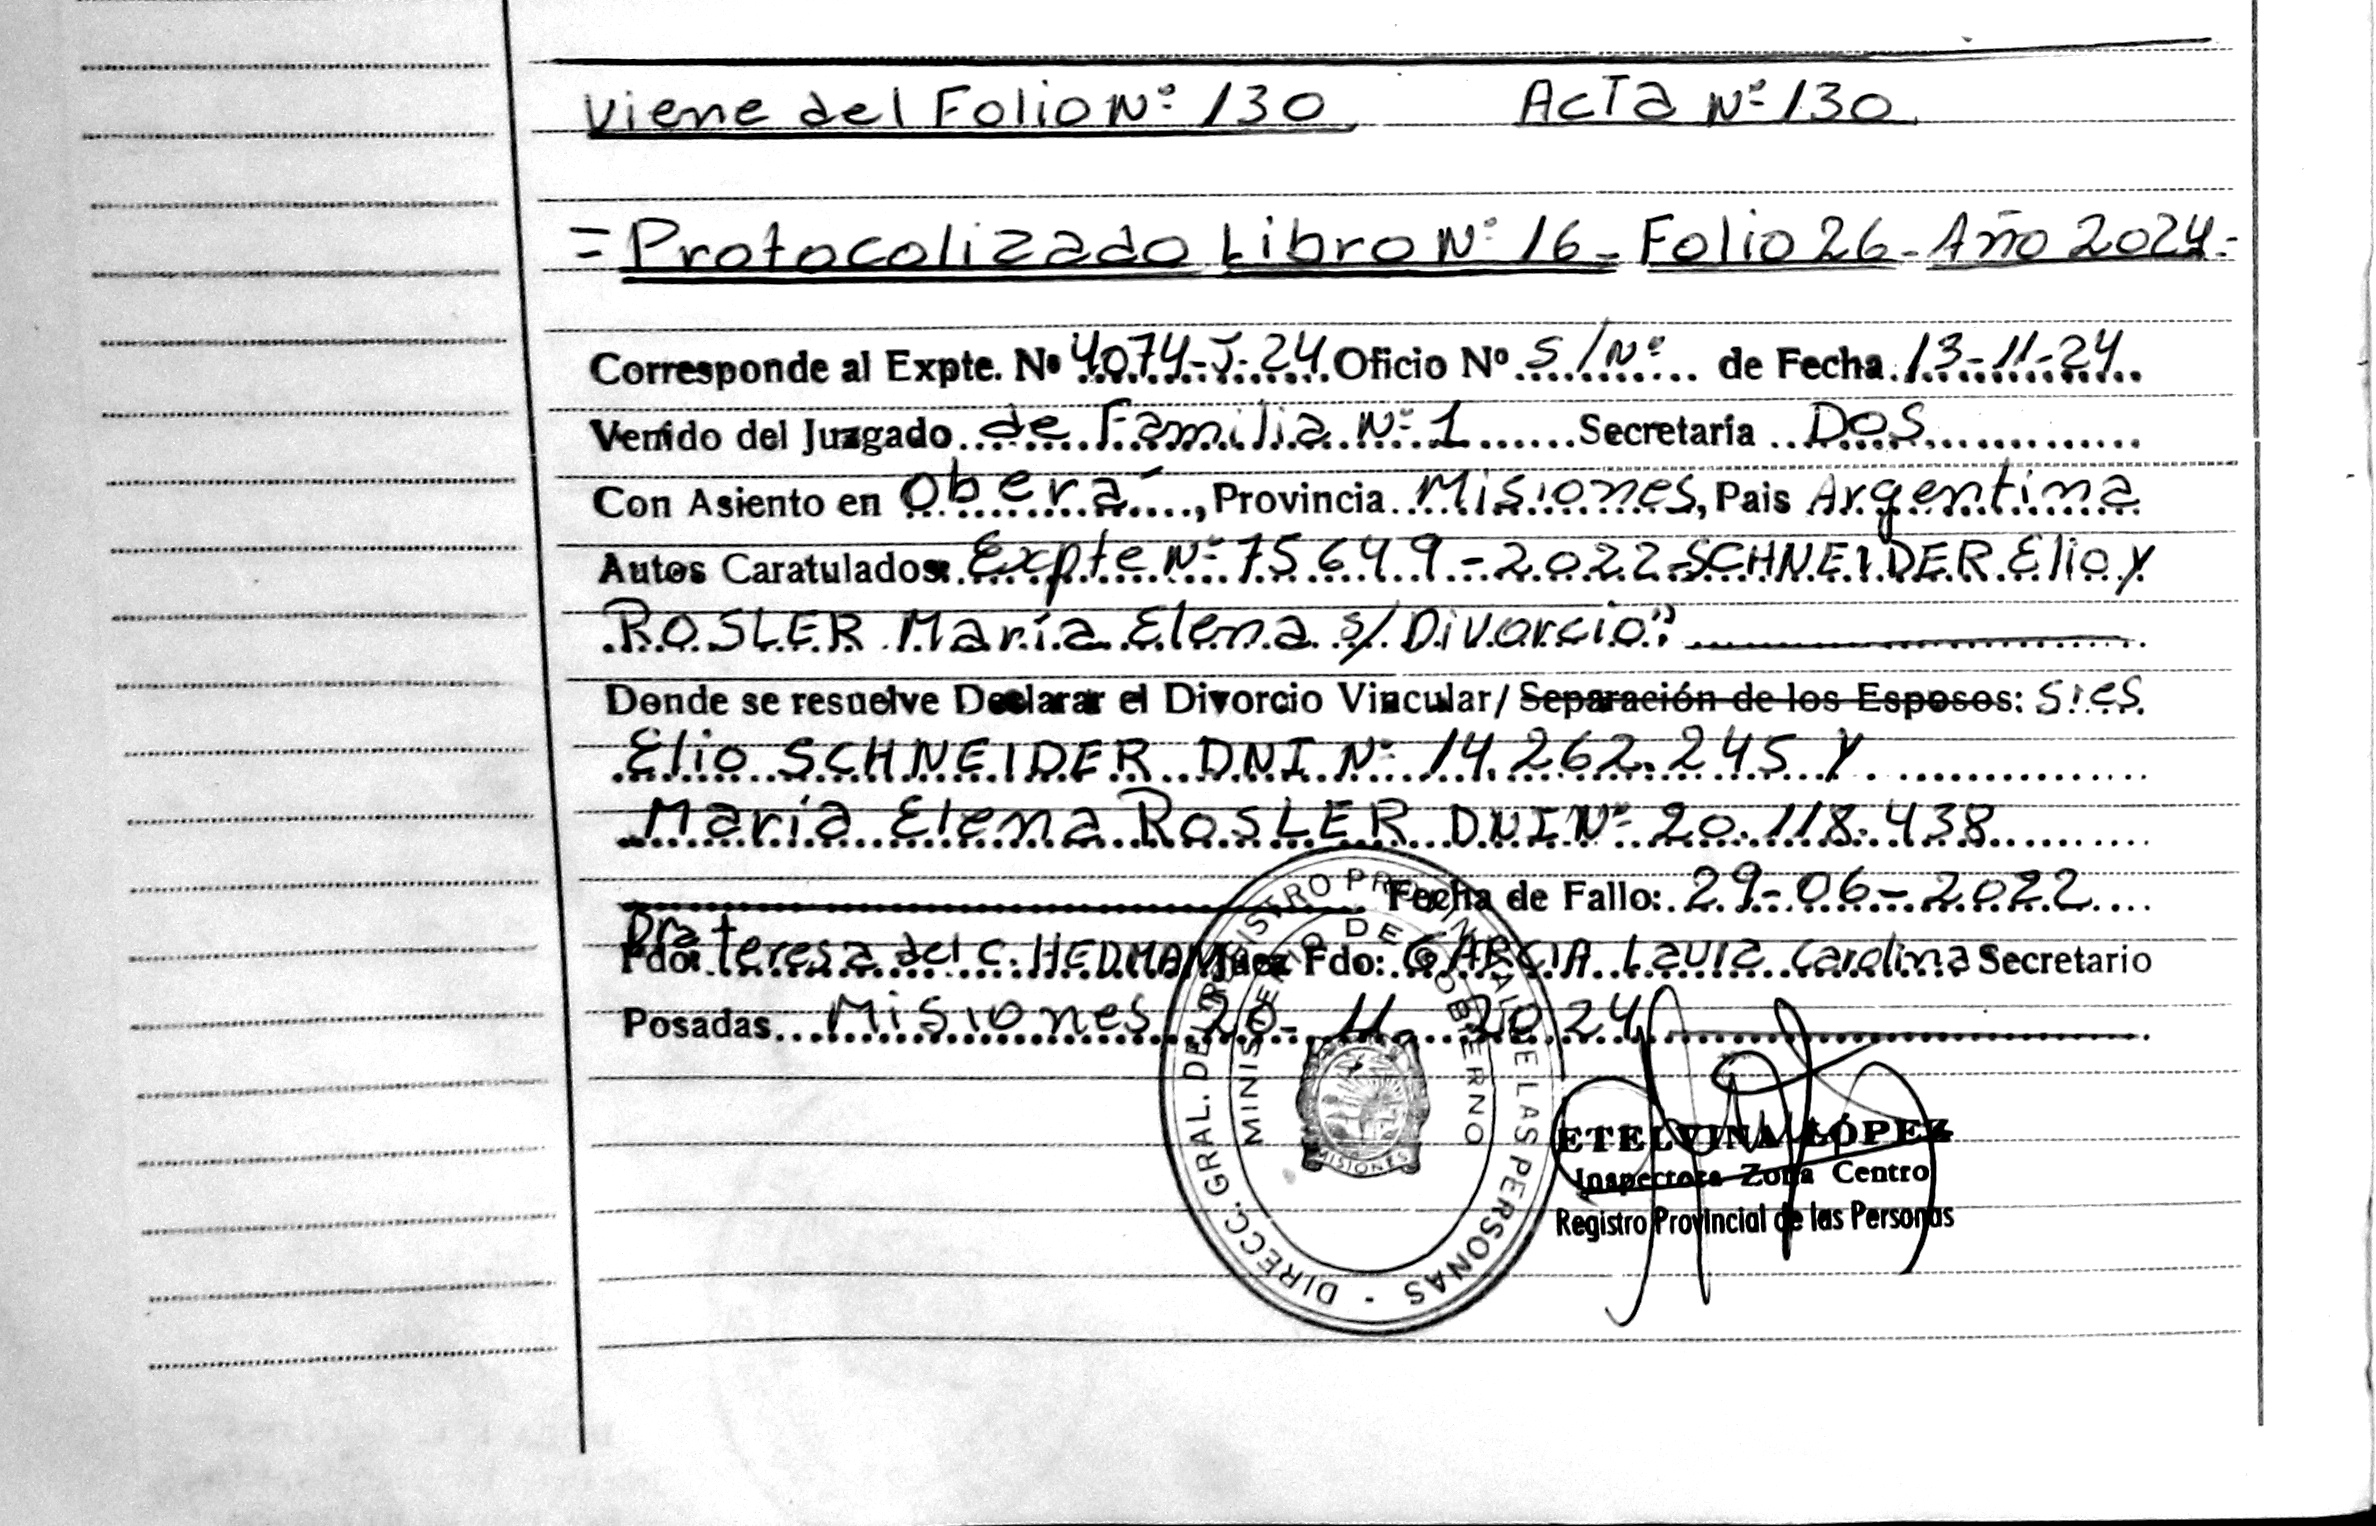 Viene del Folio Nº 130. Acta Nº 130.
= Protocolizado Libro Nº 16 - Folio 26 - Año 2024 -
Corresponde al Expte. Nº 4074-J-24 Oficio Nº S/Nº de Fecha 13-11-24
Venido del Juzgado de Familia Nº 1 Secretaría Dos
Con Asiento en Oberá, Provincia Misiones, Pais Argentina
Autos Caratulados: Expte Nº 75649-2022-SCHNEIDER Elio y
ROSLER María Elena s/ Divorcio"
Donde se resuelve Declarar el Divorcio Vincular/ Separación de los Esposos: s.es
Elio SCHNEIDER DNI Nº 14.262.245 y
María Elena ROSLER DNI Nº 20.118.438
Fecha de Fallo: 29-06-2022
Fdo: Dra Teresa del C. HEDMAN Juez Fdo: GARCIA Laura Carolina Secretario
Posadas Misiones 20-11-2024
DIRECC. GRAL. DEL REGISTRO PROVINCIAL DE LAS PERSONAS -
MINISTERIO DE GOBIERNO
MISIONES
ETELVINA LÓPEZ
Inspectora Zona Centro
Registro Provincial de las Personas